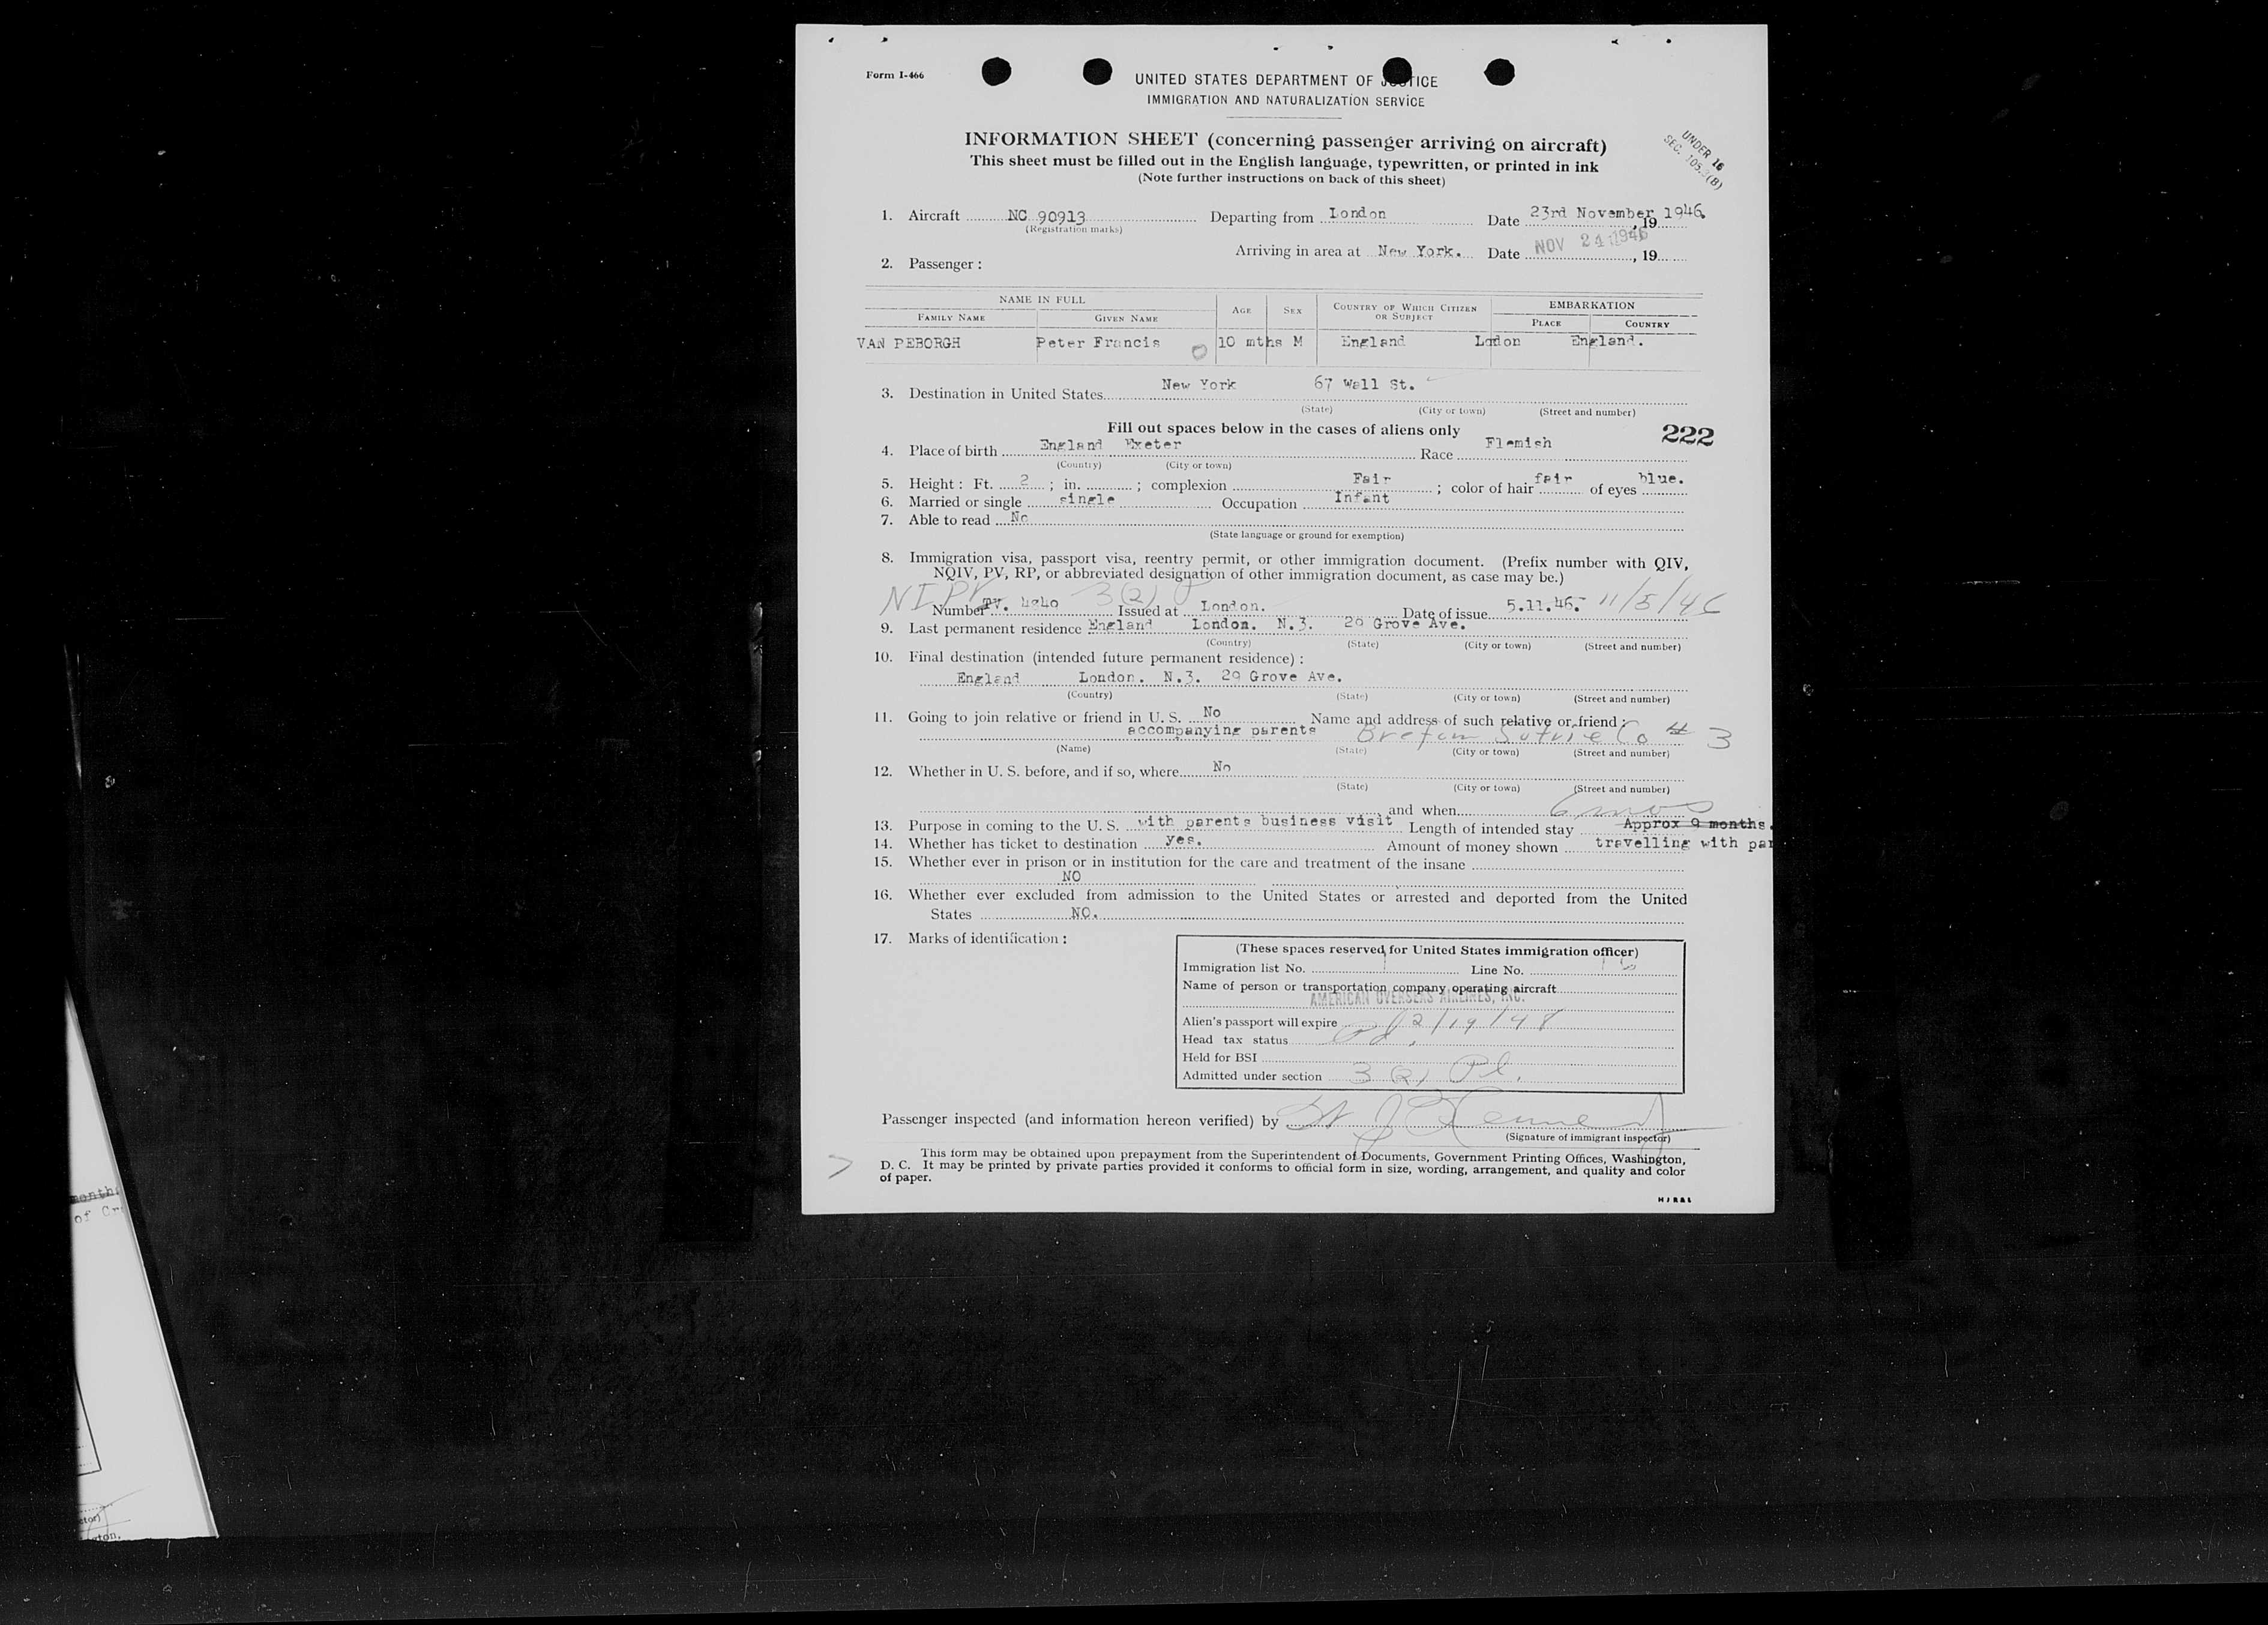 Form I-466
UNITED STATES DEPARTMENT OF JUSTICE
IMMIGRATION AND NATURALIZATION SERVICE
INFORMATION SHEET (concerning passenger arriving on aircraft)
This sheet must be filled out in the English language, typewritten, or printed in ink
(Note further instructions on back of this sheet)
UNDER 16
SEC. 105. (8)
1. Aircraft NC 90913 Departing from London Date 23rd November 1946, 19
(Registration marks)
Arriving in area at New York. Date NOV 24 1946, 19
2. Passenger :
NAME IN FULL AGE SEX COUNTRY OF WHICH CITIZEN OR SUBJECT EMBARKATION
FAMILY NAME GIVEN NAME PLACE COUNTRY
VAN PEBORGH Peter Francis 10 mths M England Lodon England.
3. Destination in United States New York 67 Wall St.
(State) (City or town) (Street and number)
Fill out spaces below in the cases of aliens only
222
4. Place of birth England Exeter Race Flemish
(Country) (City or town)
5. Height : Ft. 2 ; in. ; complexion Fair ; color of hair fair of eyes blue.
6. Married or single single Occupation Infant
7. Able to read No
(State language or ground for exemption)
8. Immigration visa, passport visa, reentry permit, or other immigration document. (Prefix number with QIV,
NQIV, PV, RP, or abbreviated designation of other immigration document, as case may be.)
NIPV 3(2)
Number PV. 4840 Issued at London. Date of issue 5.11.46. 11/5/46
9. Last permanent residence England London. N.3. 29 Grove Ave.
(Country) (State) (City or town) (Street and number)
10. Final destination (intended future permanent residence) :
England London. N.3. 29 Grove Ave.
(Country) (State) (City or town) (Street and number)
11. Going to join relative or friend in U. S. No Name and address of such relative or friend :
accompanying parents Co # 3
(Name) (State) (City or town) (Street and number)
12. Whether in U. S. before, and if so, where No
(State) (City or town) (Street and number)
and when 6 mos
13. Purpose in coming to the U. S. with parents business visit Length of intended stay Approx 9 months.
14. Whether has ticket to destination yes. Amount of money shown travelling with par
15. Whether ever in prison or in institution for the care and treatment of the insane
NO
16. Whether ever excluded from admission to the United States or arrested and deported from the United
States NO.
17. Marks of identification :
(These spaces reserved for United States immigration officer)
Immigration list No. Line No.
Name of person or transportation company operating aircraft
AMERICAN OVERSEAS AIRLINES, INC.
Alien's passport will expire 2/19/48
Head tax status
Held for BSI
Admitted under section 3 (2) Pl.
Passenger inspected (and information hereon verified) by
(Signature of immigrant inspector)
This form may be obtained upon prepayment from the Superintendent of Documents, Government Printing Offices, Washington,
D. C. It may be printed by private parties provided it conforms to official form in size, wording, arrangement, and quality and color
of paper.
months
of Cr
ctor)
gton.